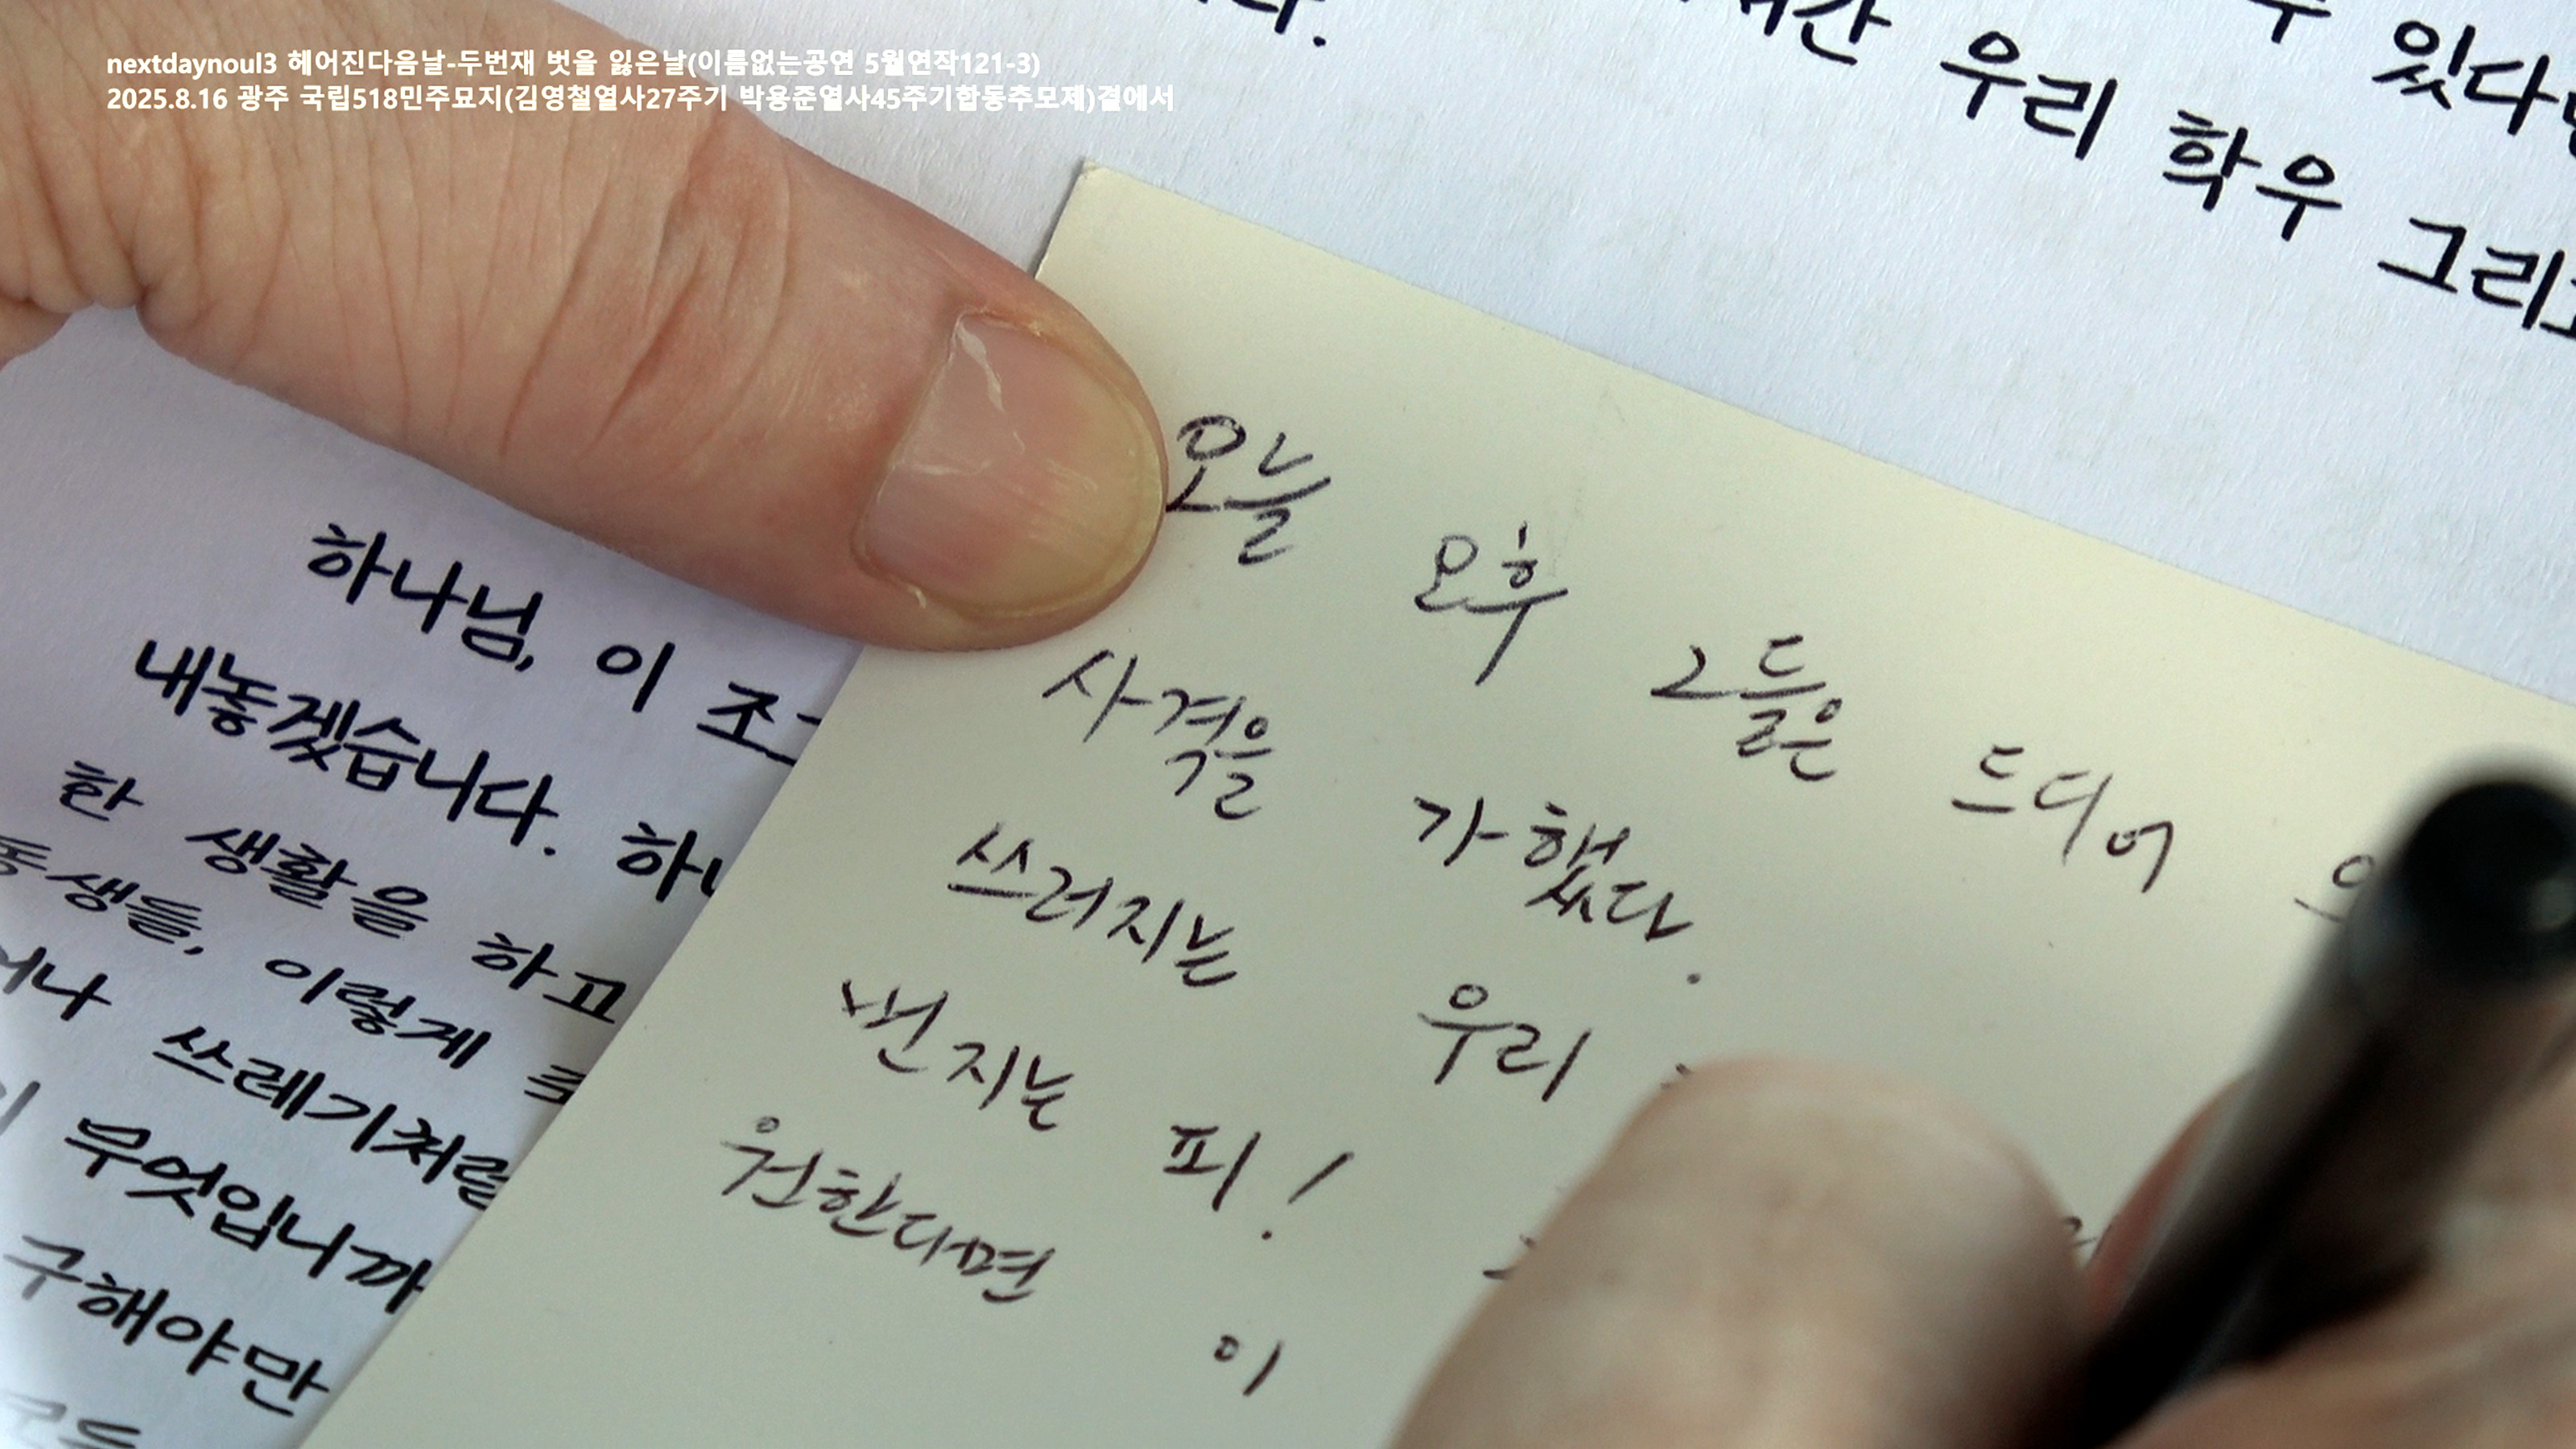 nextdaynoul3 헤어진다음날-두번재 벗을 잃은날(이름없는공연 5월연작121-3)
2025.8.16 광주 국립518민주묘지(김영철열사27주기 박용준열사45주기합동추모제)곁에서
있다
우리 학우 그리고
오늘 오후 그들은 드디어
사격을 가했다.
쓰러지는 우리
번지는 피!
원한다면 이
하나님, 이 조그
내놓겠습니다. 하나
한 생활을 하고
동생들, 이렇게
쓰레기처럼
무엇입니까
구해야만